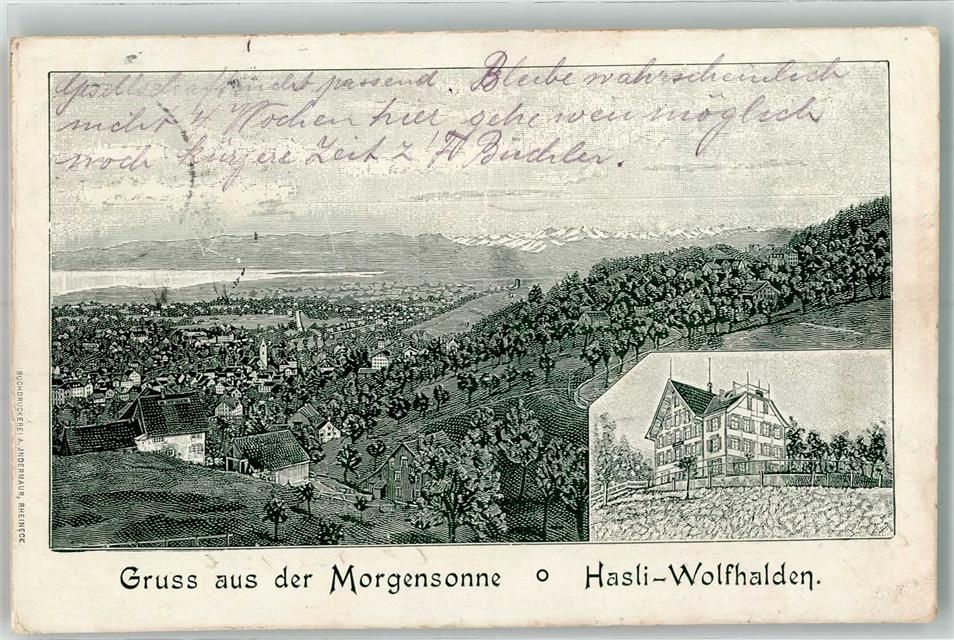 Gesellschaft nicht passend. Bleibe wahrscheinlich
nicht 4 Wochen hier, gehe wen möglich
noch kürzere Zeit z' Büchler.
BUCHDRUCKEREI A. JNDERMAUR, RHEINECK
Gruss aus der Morgensonne o Hasli-Wolfhalden.